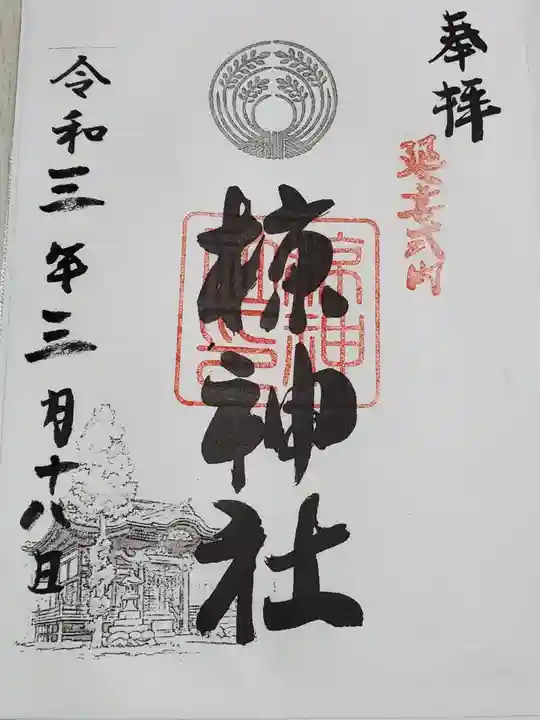 奉拝
延喜式内
椋神社
椋神社印
令和三年三月十八日